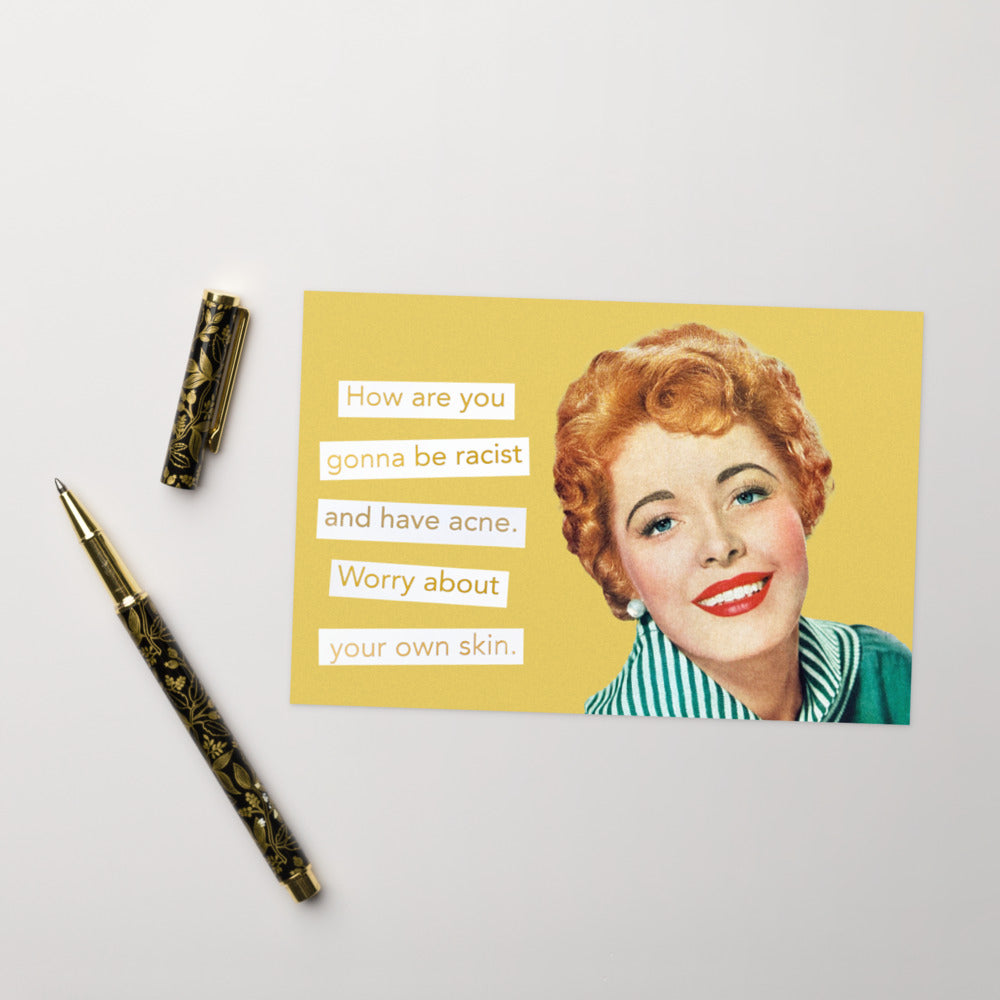 How are you
gonna be racist
and have acne.
Worry about
your own skin.